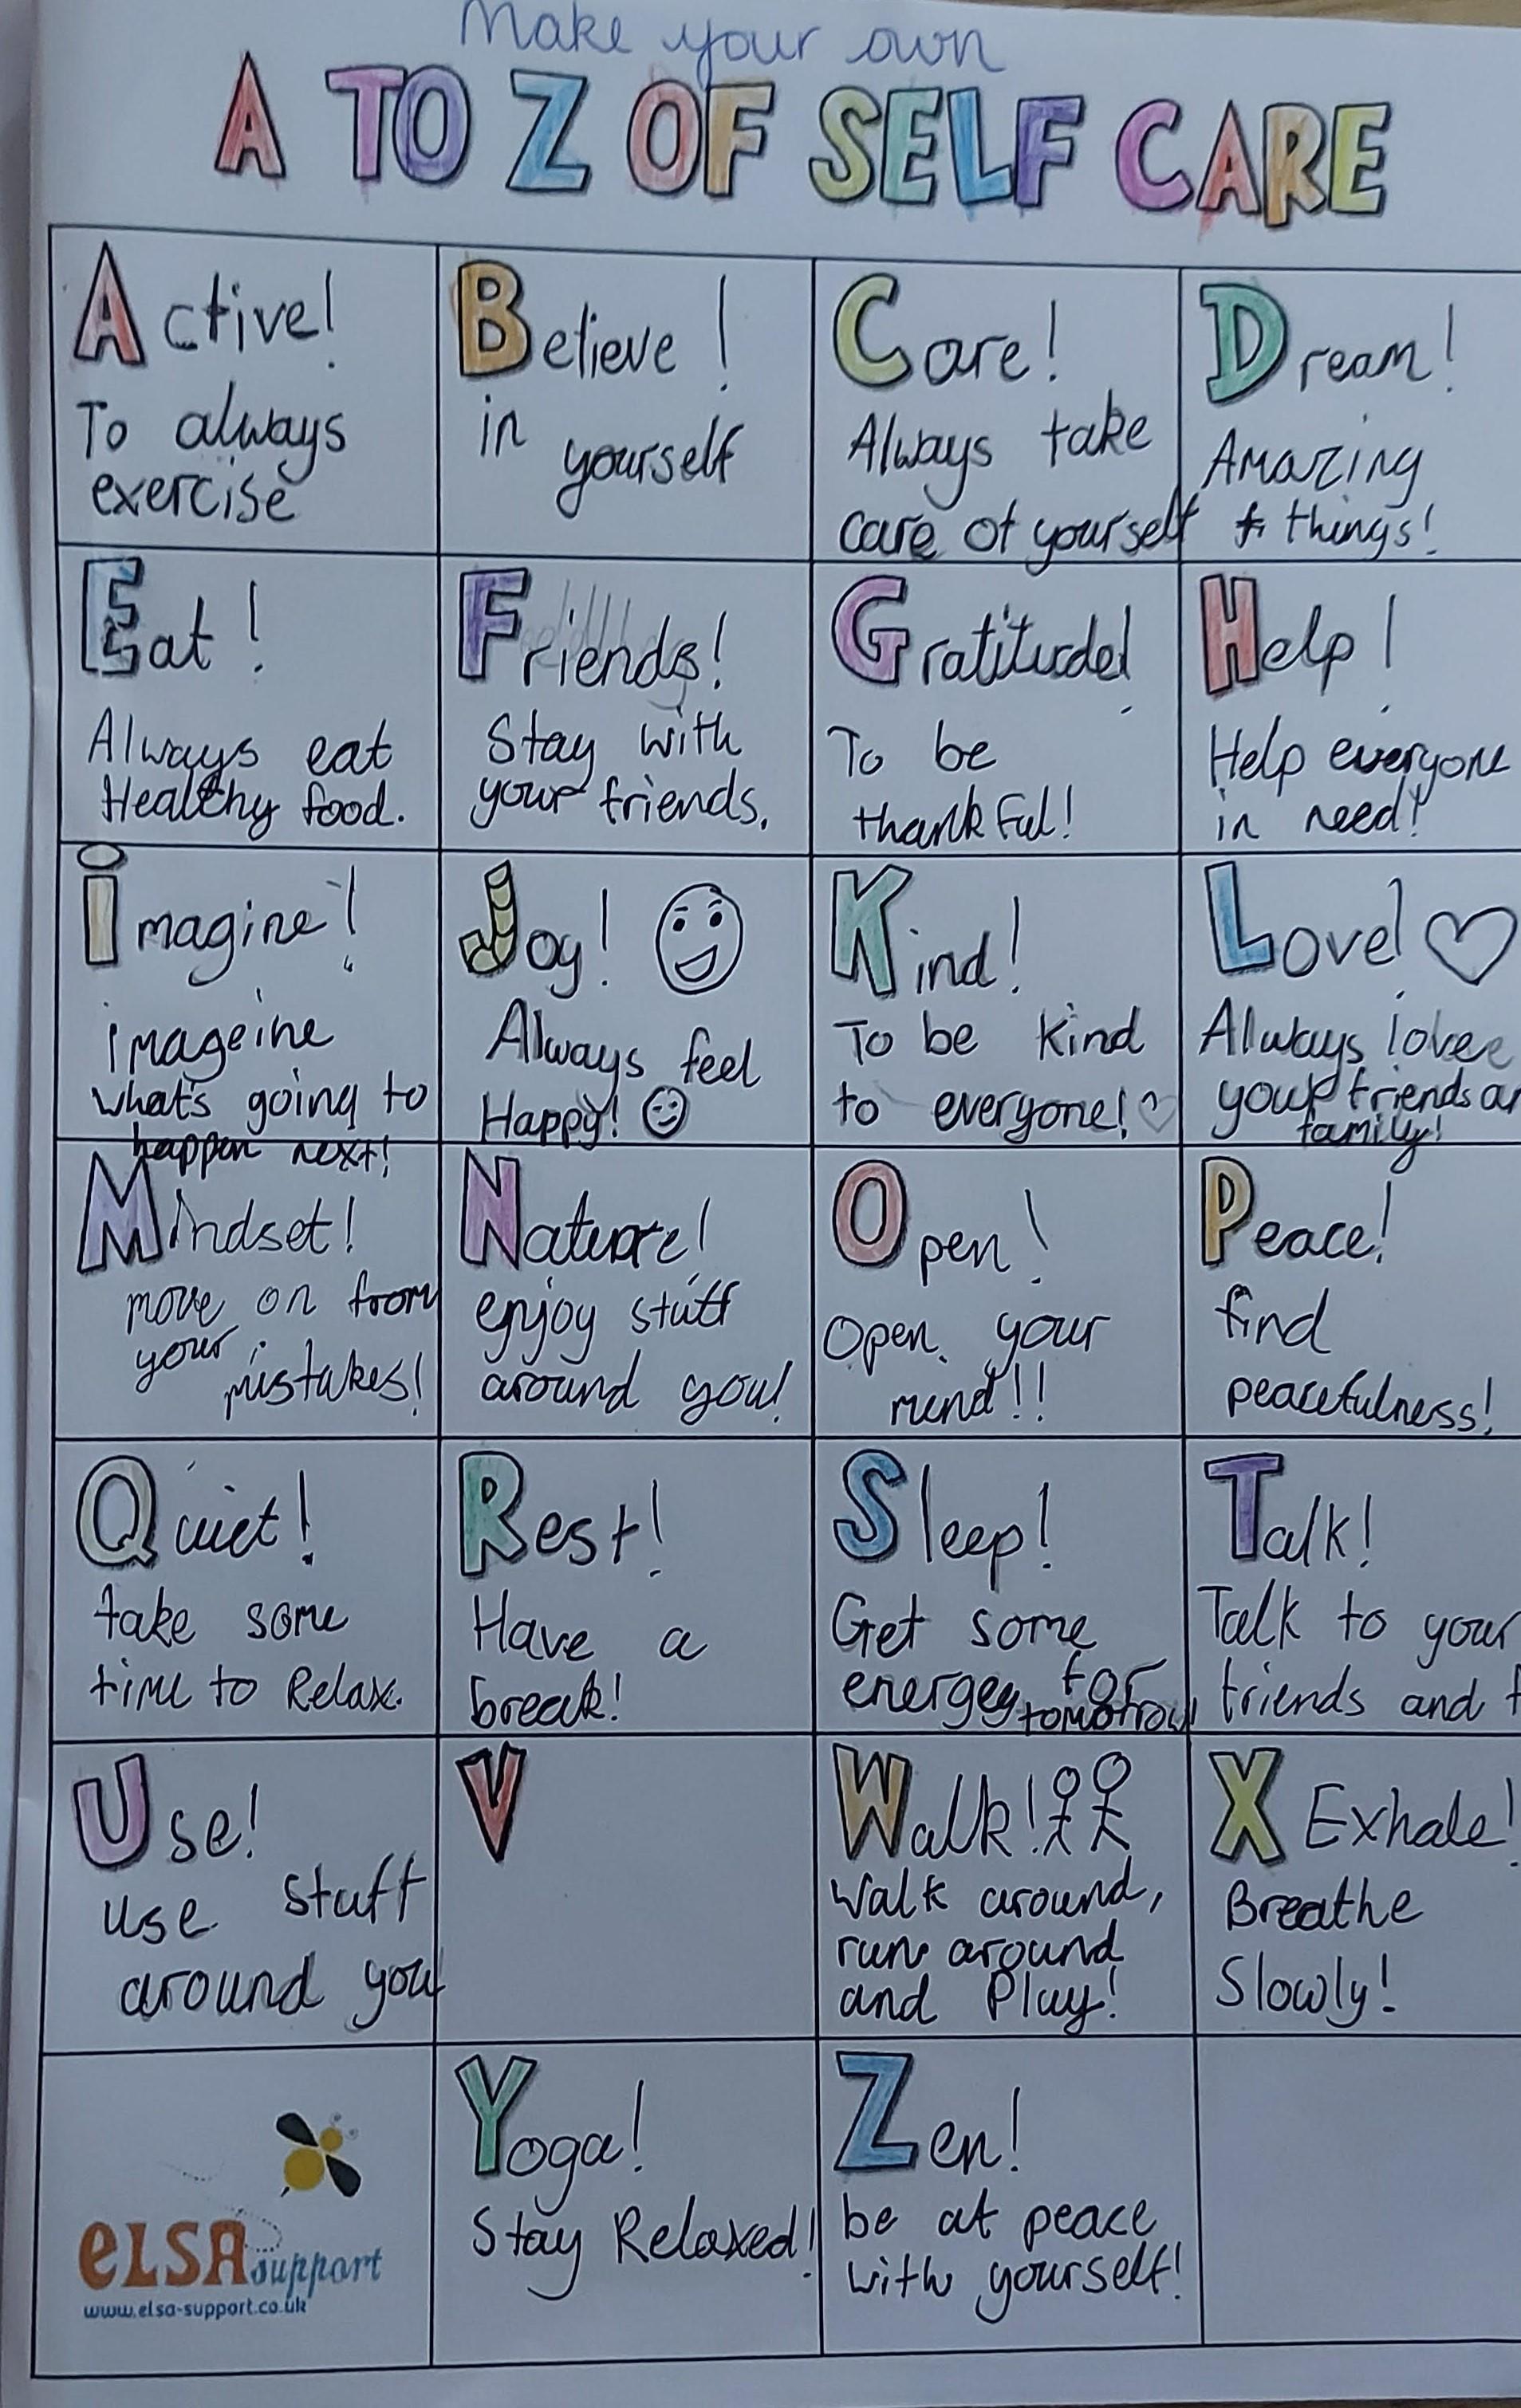 Make your own
A TO Z OF SELF CARE
Active!
To always
exercise
Believe!
in yourself
Care!
Always take
care of yourself
Dream!
Amazing
things!
Eat!
Always eat
Healthy food.
Friends!
Stay with
your friends.
Gratitude!
To be
thankful!
Help!
Help everyone
in need!
imagine!
imageine
what's going to
happen next!
Joy!
Always feel
Happy!
Kind!
To be kind
to everyone!
Love!
Always lovee
your friends
family!
Mindset!
move on from
your
mistakes!
Nature!
enjoy stuff
around you!
Open!
Open your
mind!!
Peace!
find
peacefulness!
Quiet!
take some
time to Relax.
Rest!
Have a
break!
Sleep!
Get some
energey for
tomorrow!
Talk!
Talk to your
friends and
Use!
Use stuff
around you
V
Walk!
Walk around,
run around
and Play!
X Exhale!
Breathe
Slowly!
eLSA support
www.elsa-support.co.uk
Yoga!
Stay Relaxed!
Zen!
be at peace
with yourself!